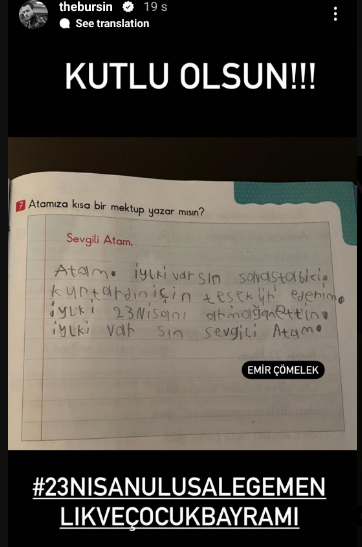 thebursin 19 s
See translation
KUTLU OLSUN!!!
7 Atamıza kısa bir mektup yazar mısın?
Sevgili Atam,
Atam. iyiki varsın savasta bizi
kurtardın için teşekkür ederim.
iyiki 23Nisanı armağanettin.
iyiki var sın sevgili Atam.
EMİR ÇÖMELEK
#23NISANULUSALEGEMEN
LIKVEÇOCUKBAYRAMI